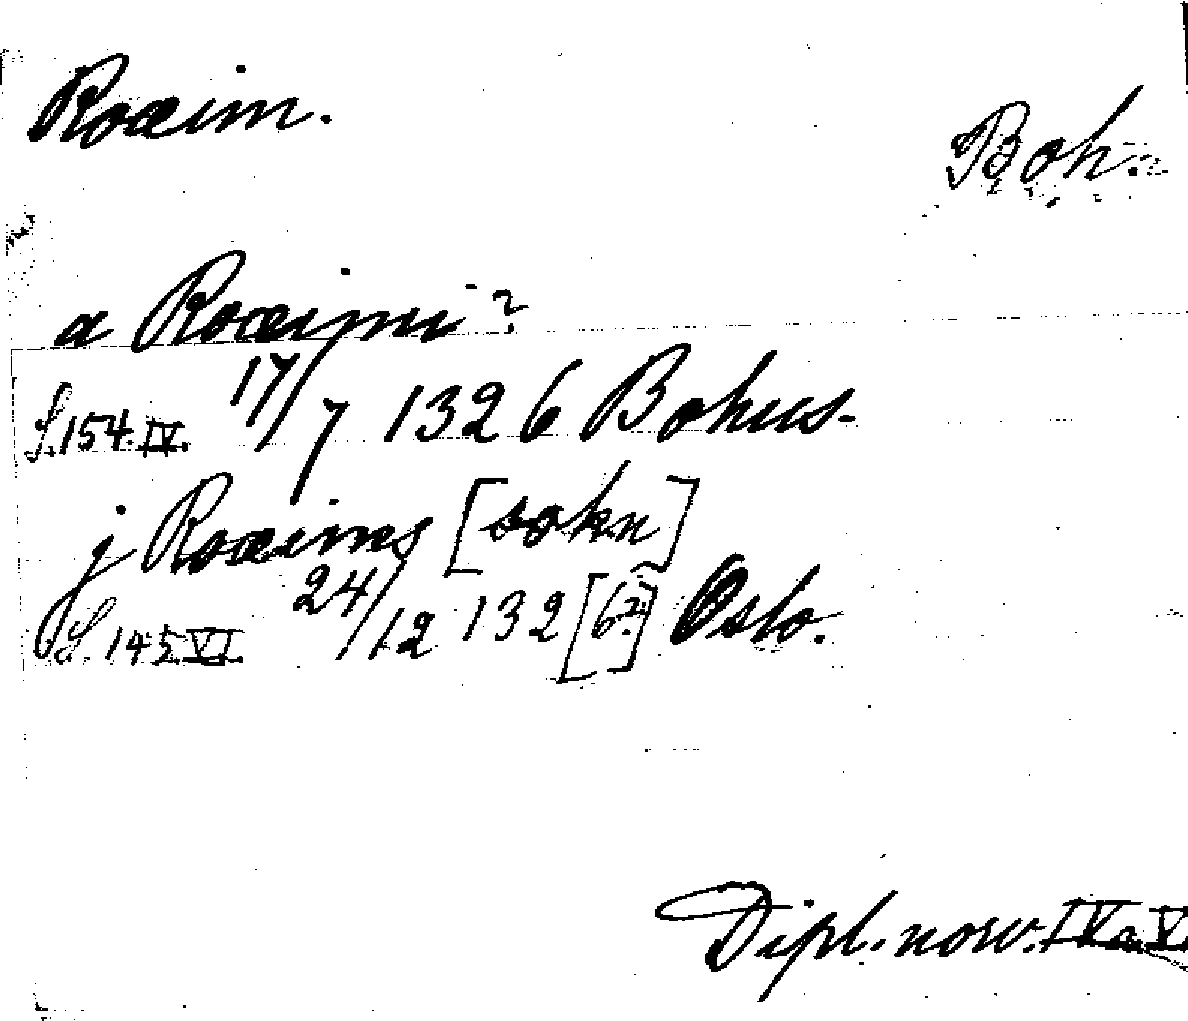 Roæim.
Boh.
a Roæimi?
S. 154. IV. 17/7 1326 Bohus.
j Roæims [sokn]
S. 145 VI. 24/12 132[6?] Oslo.
Dipl. norv. IV a. V.